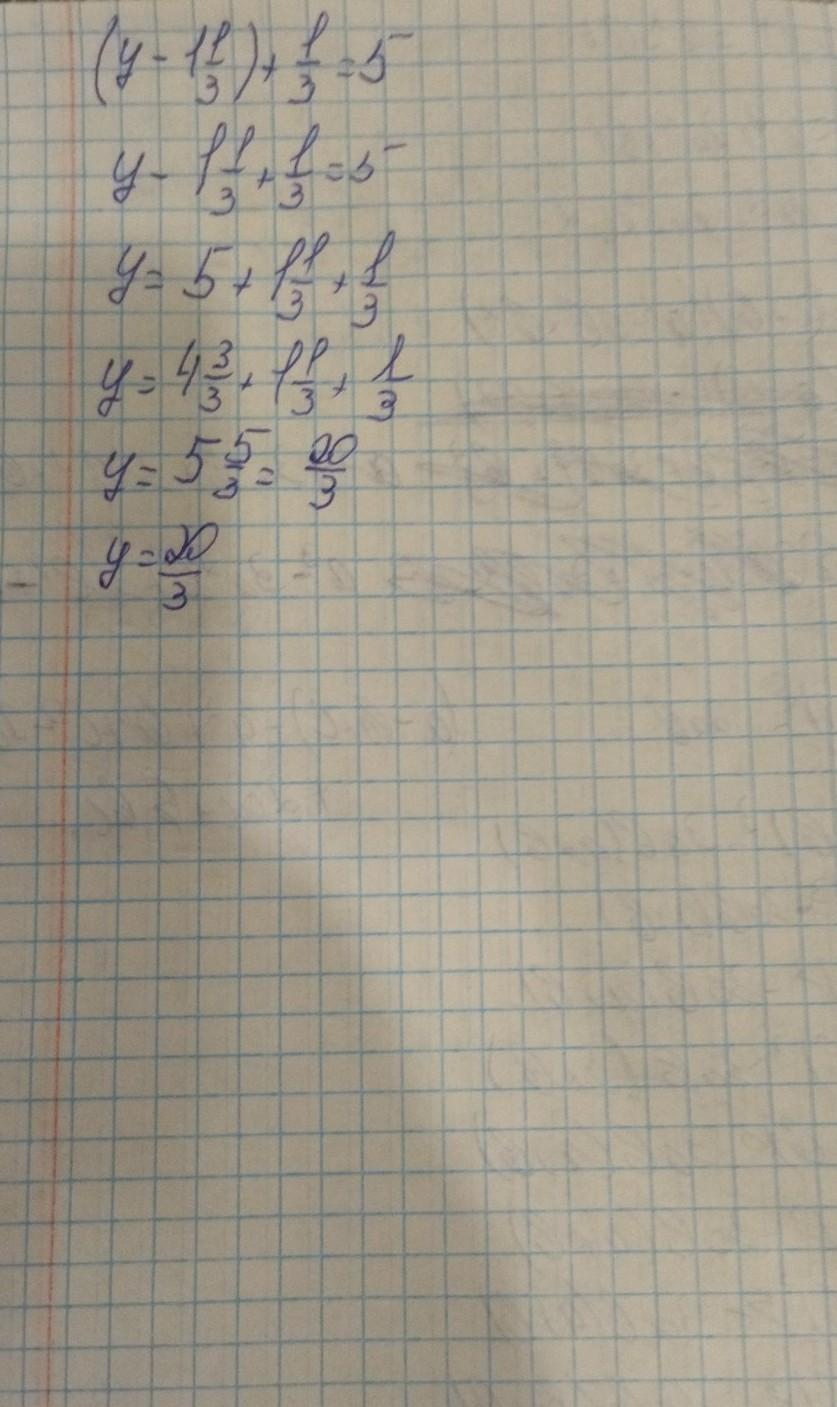 (y - 1 1/3) + 1/3 = 5
y - 1 1/3 + 1/3 = 5
y = 5 + 1 1/3 + 1/3
y = 4 3/3 + 1 1/3 + 1/3
y = 5 5/3 = 20/3
y = 20/3